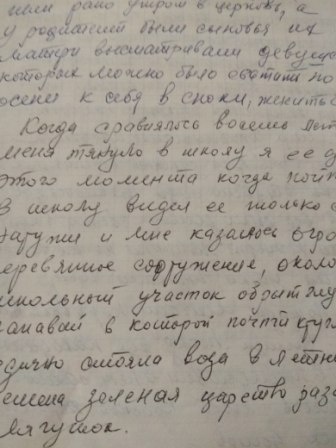 шли рано утром в церковь, а
у родителей были сыновья их
матери высматривали девуше
которых можно было сватать по
осени к себе в снохи, женить
Когда сравнялось восемь лет
меня тянуло в школу я ее
этого момента когда пойт
В школу видел ее только с
наружи и мне казалось огро
деревянное сооружение, около
школьный участок обрыт глу
канавой в которой почти кругл
одично стояла вода в летн
время зеленая царство раз
лягушок.